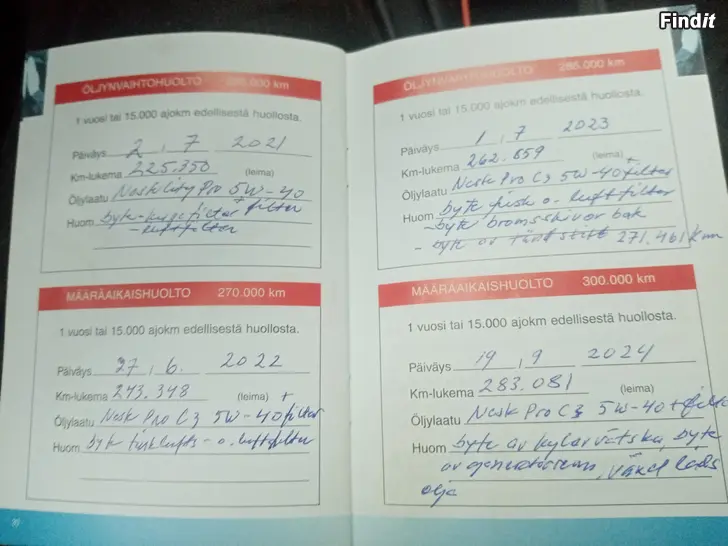 Findit
ÖLJYNVAIHTOHUOLTO 000 km
1 vuosi tai 15.000 ajokm edellisestä huollosta.
Päiväys 2 . 7 2021
Km-lukema 225.350 (leima)
Öljylaatu Neste City Pro 5W-40
Huom byte filter
- luftfilter
MÄÄRÄAIKAISHUOLTO 270.000 km
1 vuosi tai 15.000 ajokm edellisestä huollosta.
Päiväys 27 . 6. 2022
Km-lukema 243.348 (leima) +
Öljylaatu Nesk Pro C3 5W-40 filter
Huom byte o. luftfilter
ÖLJYNVAIHTOHUOLTO 285.000 km
1 vuosi tai 15.000 ajokm edellisestä huollosta.
Päiväys 1 . 7 2023
Km-lukema 262.859 (leima) +
Öljylaatu Nesk Pro C3 5W-40 filter
Huom byte o. luftfilter
- byte bromsskivor bak
- byte av tändstift 271.461 km
MÄÄRÄAIKAISHUOLTO 300.000 km
1 vuosi tai 15.000 ajokm edellisestä huollosta.
Päiväys 19 . 9 2024
Km-lukema 283.081 (leima)
Öljylaatu Nesk Pro C3 5W-40 + filter
Huom byte av kylarvätska, byte
av generatorrem, växellåds
olja